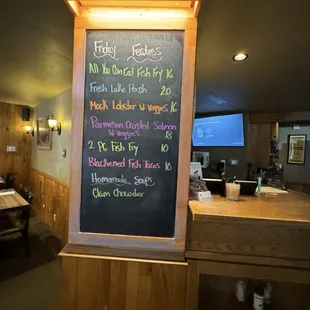 Friday Features
All You Can Eat Fish Fry 16
Fresh Lake Perch 20
Mock Lobster w Veggies 16
Parmesan Crusted Salmon
w veggies 18
2 PC Fish Fry 10
Blackened Fish Tacos 10
Homemade Soups
Clam Chowder